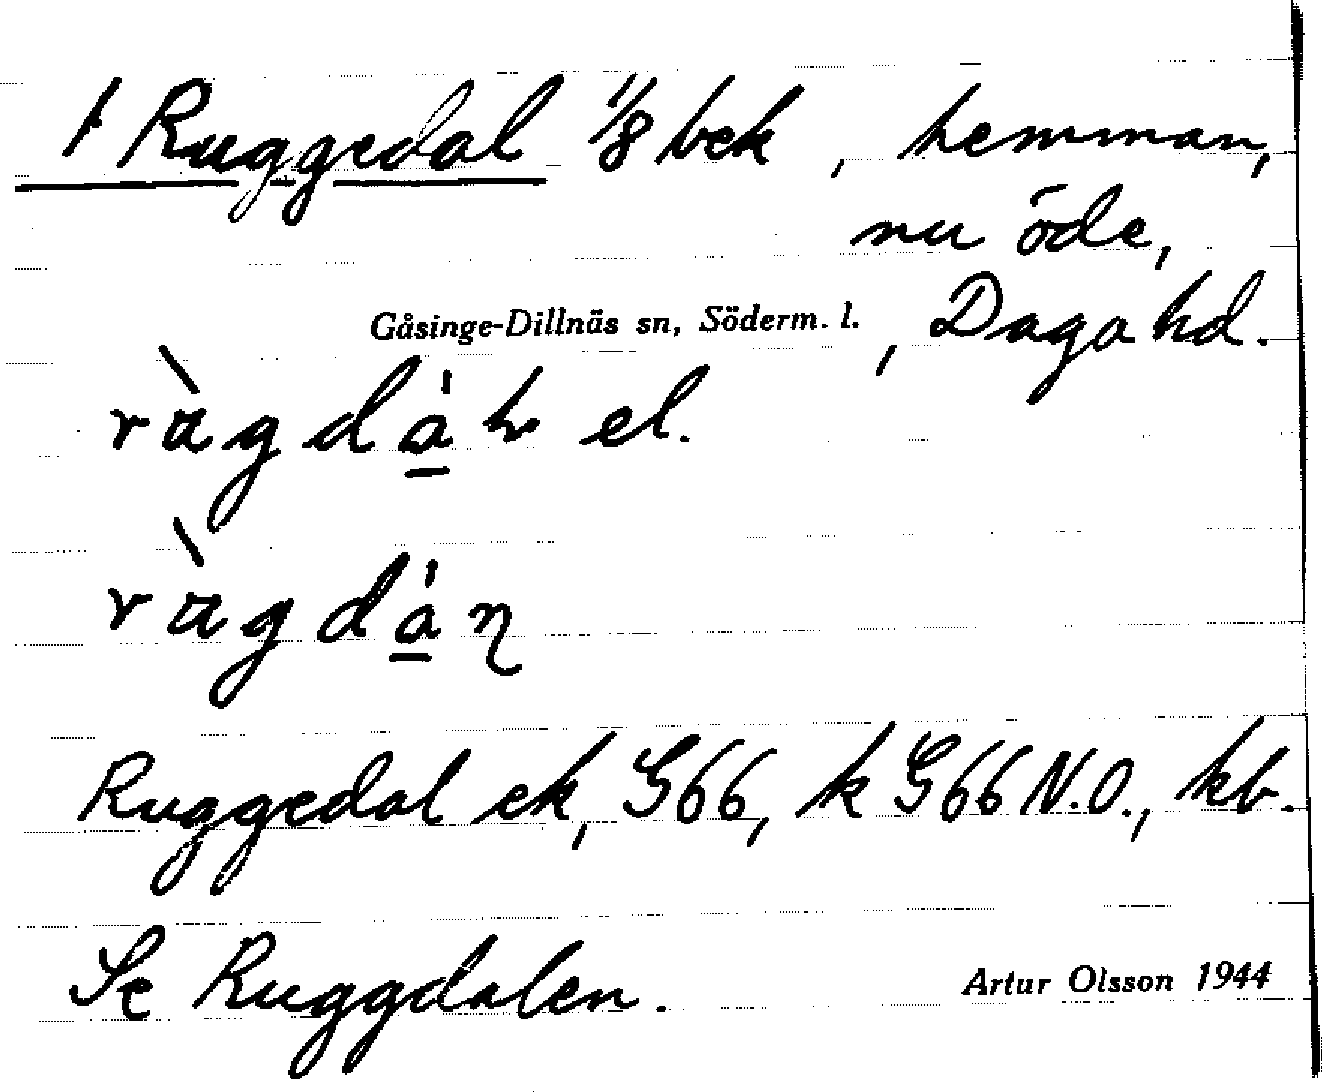 t Ruggedal 1/8 bek, hemman,
nu öde,
Gåsinge-Dillnäs sn, Söderm. l., Daga hd.
el.
Ruggedal ek, G66, k G66 N.O., kb.
Se Ruggdalen.
Artur Olsson 1944